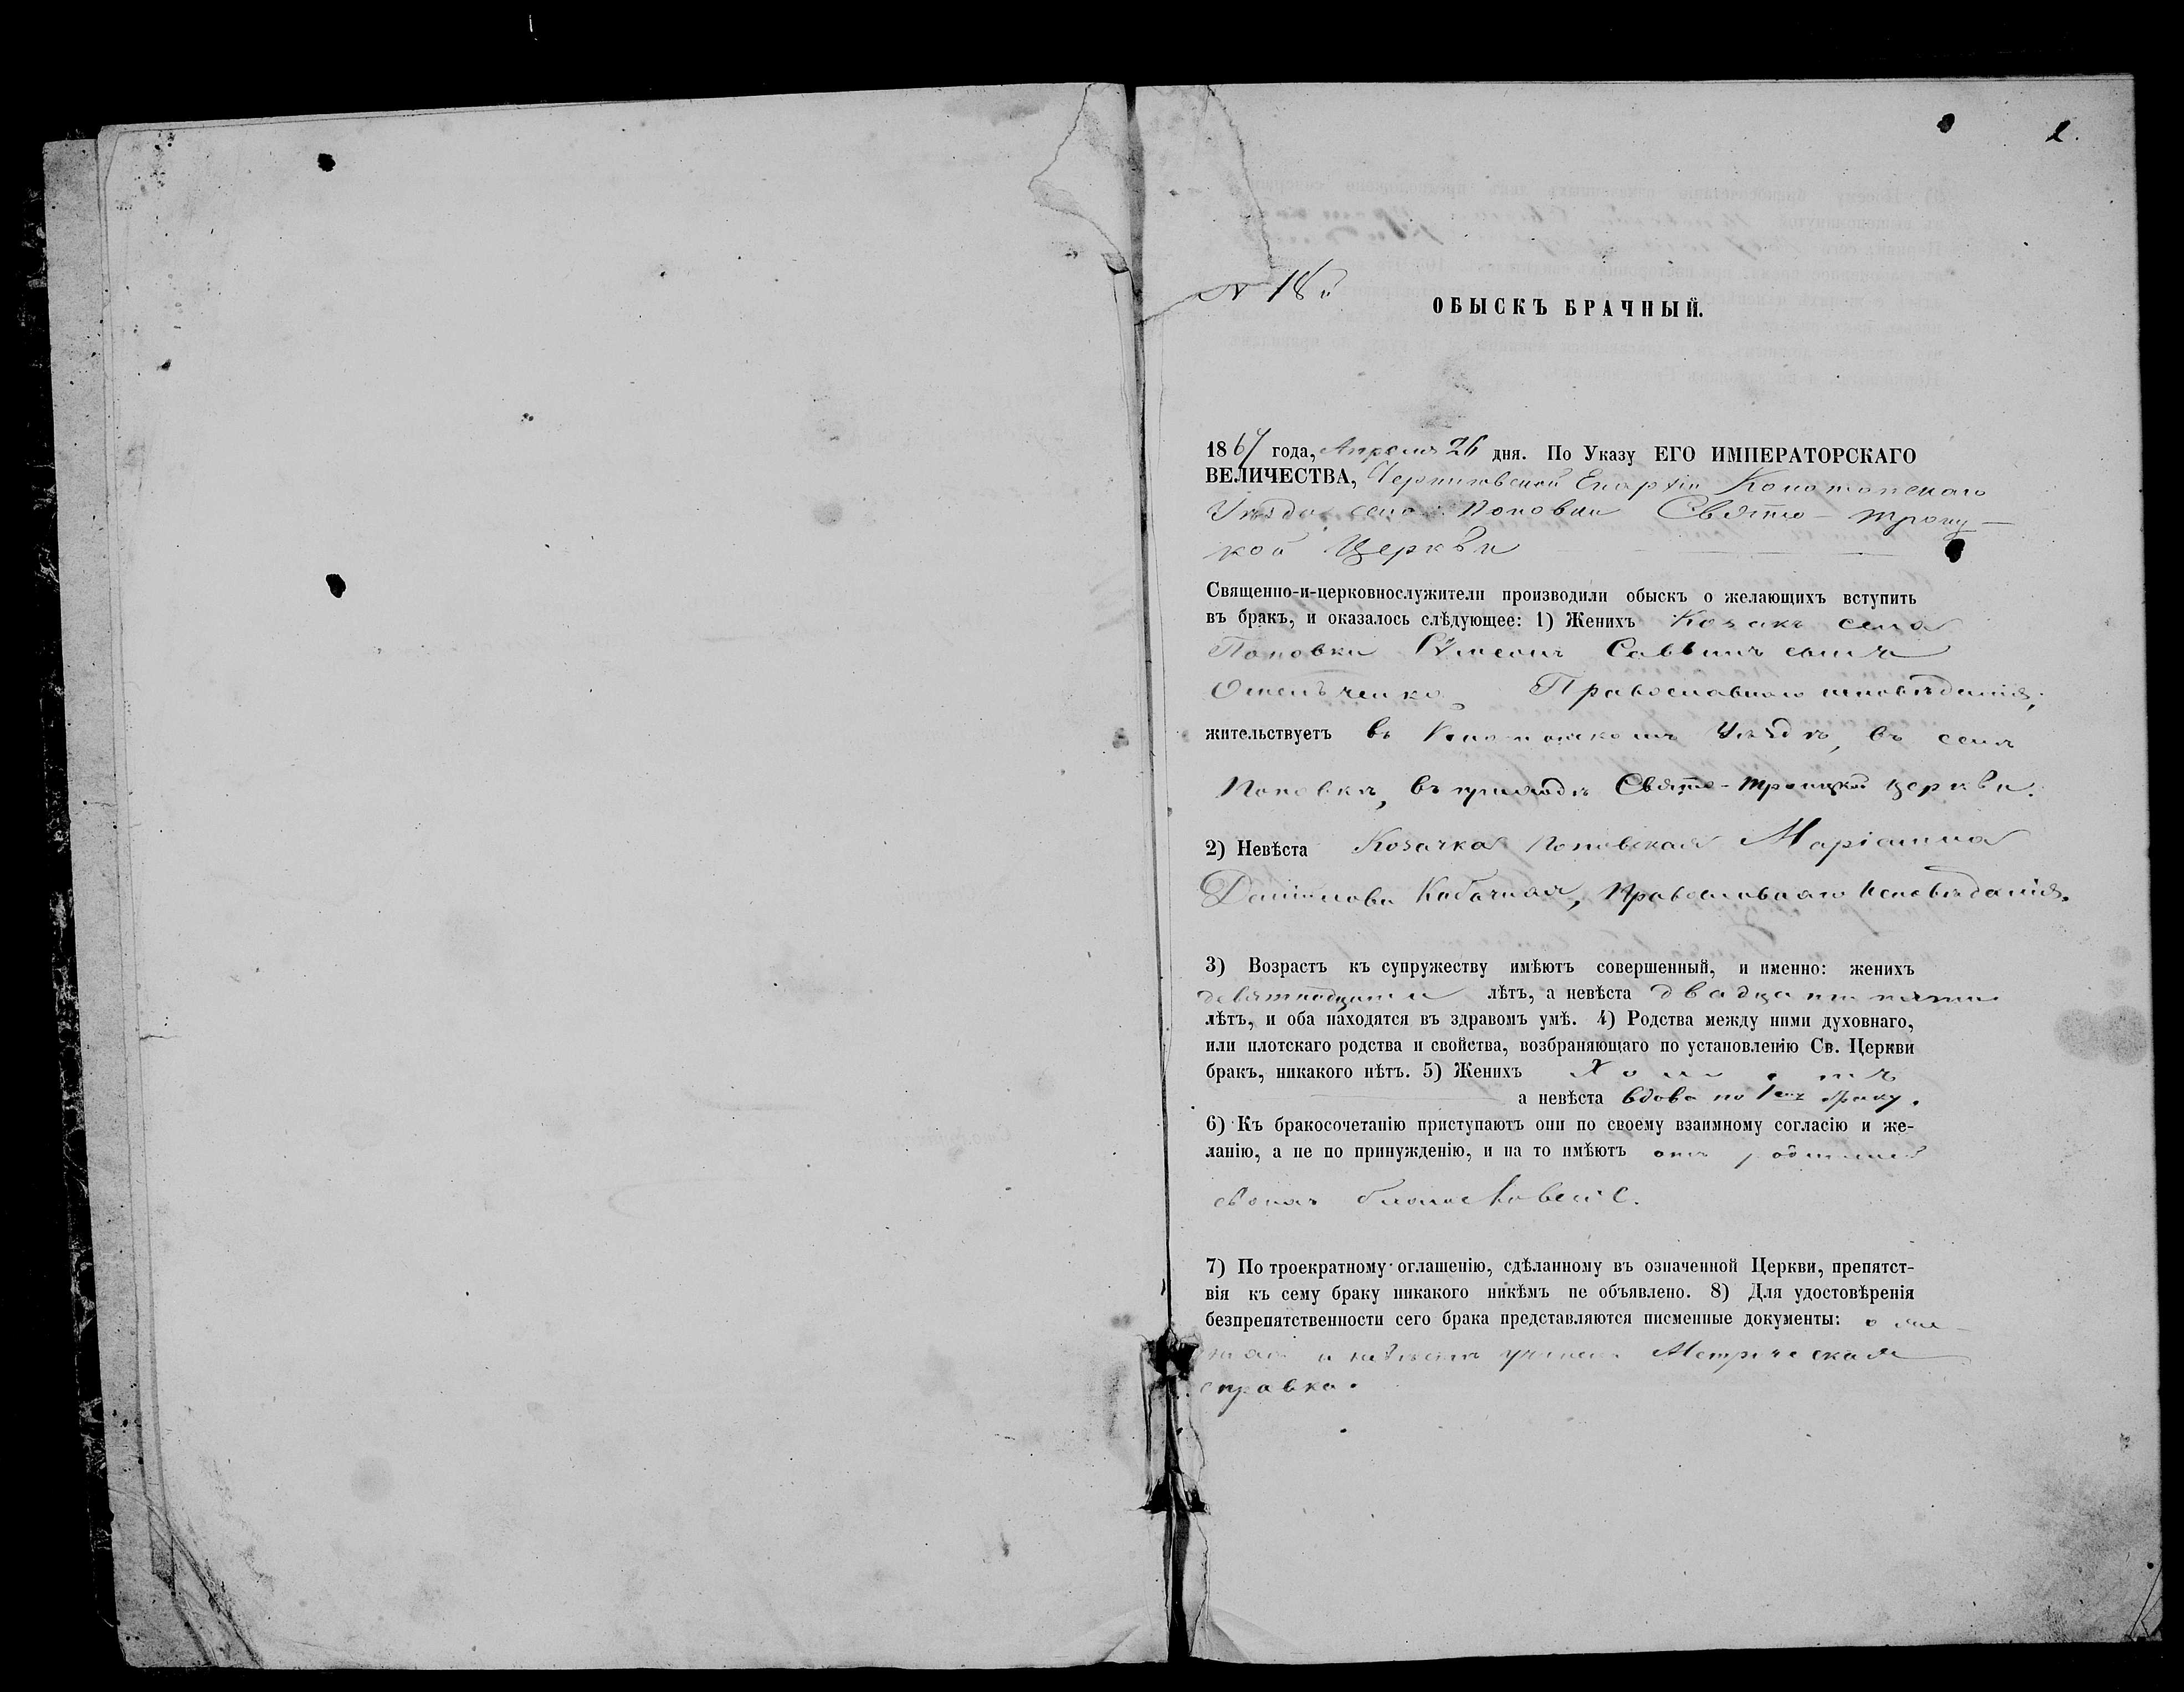 2.
N 18й
ОБЫСКЪ БРАЧНЫЙ.
1867 года, Апреля 26 дня. По Указу ЕГО ИМПЕРАТОРСКАГО
ВЕЛИЧЕСТВА, Черниговской Епархіи Конотопскаго
Уѣзда села Поповки Свято-Троиц-
кой Церкви
Священно-и-церковнослужители производили обыскъ о желающихъ вступить
въ бракъ, и оказалось слѣдующее: 1) Женихъ Козакъ села
Поповки Саввинъ сынъ
Православнаго исповѣданія,
жительствуетъ въ Конотопскомъ Уѣздѣ, въ селѣ
Поповкѣ, въ приходѣ Свято-Троицкой церкви.
2) Невѣста Козачка Поповская Маріанна
Даніилова Кабачная, Православнаго Исповѣданія.
3) Возрастъ къ супружеству имѣютъ совершенный, и именно: женихъ
девятнадцати лѣтъ, а невѣста двадцати пяти
лѣтъ, и оба находятся въ здравомъ умѣ. 4) Родства между ними духовнаго,
или плотскаго родства и свойства, возбраняющаго по установленію Св. Церкви
бракъ, никакого нѣтъ. 5) Женихъ Холостъ
а невѣста вдова по 1мъ браку.
6) Къ бракосочетанію приступаютъ они по своему взаимному согласію и же-
ланію, а не по принужденію, и на то имѣютъ отъ родителей
своихъ благословеніе.
7) По троекратному оглашенію, сдѣланному въ означенной Церкви, препятст-
вія къ сему браку никакого никѣмъ не объявлено. 8) Для удостовѣренія
безпрепятственности сего брака представляются писменные документы: о же-
нихѣ и невѣстѣ Метрическая
справка.